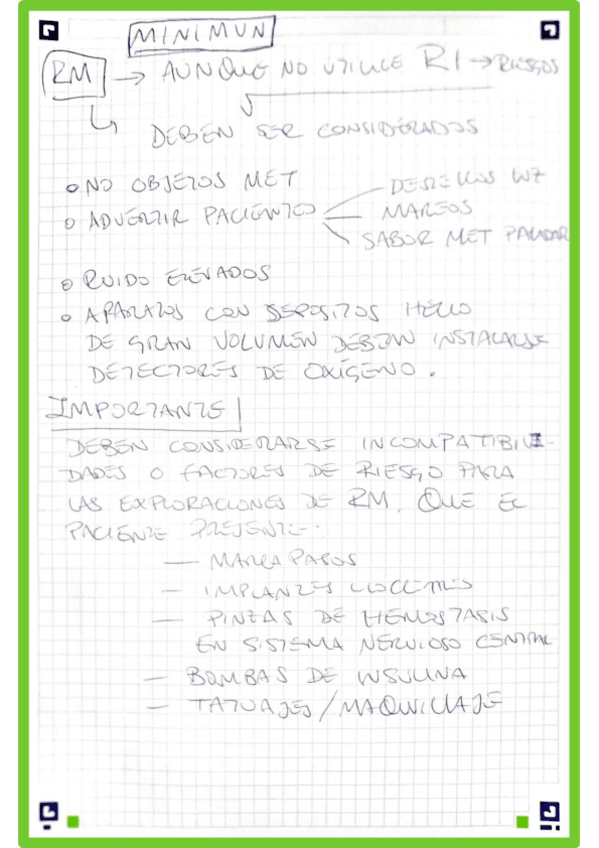 MINIMUN
RM → AUNQUE NO UTILICE RI → RIESGOS
DEBEN SER CONSIDERADOS
NO OBJETOS MET
ADVERTIR PACIENTES
DESTELLOS LUZ
MAREOS
SABOR MET PALADAR
RUIDO ELEVADOS
APARATOS CON DEPOSITOS HELIO
DE GRAN VOLUMEN DEBEN INSTALARSE
DETECTORES DE OXÍGENO.
IMPORTANTE
DEBEN CONSIDERARSE INCOMPATIBILI-
DADES O FACTORES DE RIESGO PARA
LAS EXPLORACIONES DE RM, QUE EL
PACIENTE PRESENTE.
— MARCAPASOS
— IMPLANTES COCLEARES
— PINZAS DE HEMOSTASIS
EN SISTEMA NERVIOSO CENTRAL
— BOMBAS DE INSULINA
— TATUAJES/MAQUILLAJE